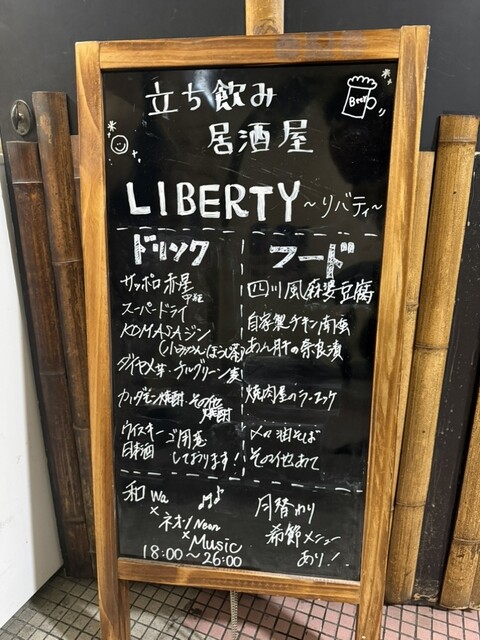 立ち飲み
Beer
居酒屋
LIBERTY ~リバティ~
ドリンク
サッポロ赤星
中瓶
スーパードライ
KOMASAジン
ダイヤメ芋・チルグリーン麦
焼酎・その他
焼酎
ウイスキーご用意
日本酒 しております!
フード
四川風麻婆豆腐
自家製チキン南蛮
あん肝の奈良漬
焼肉屋の
油そば
その他あて
和 Wa
×
ネオン Neon
×
Music
18:00~26:00
月替わり
希節メニュー
あり!